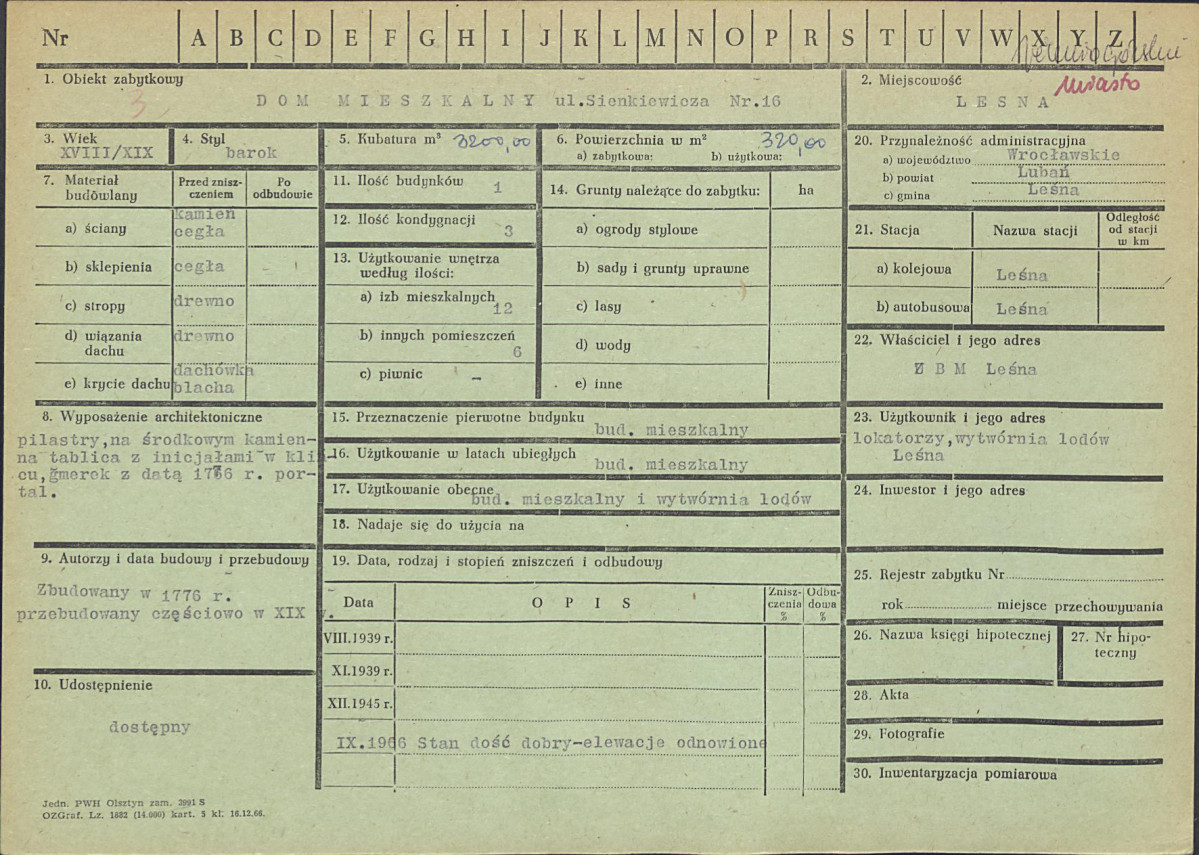 Nr A B C D E F G H I J K L M N O P R S T U V W X Y Z
1. Obiekt zabytkowy
3
DOM MIESZKALNY ul.Sienkiewicza Nr.16
2. Miejscowość
Miasto
LESNA
3. Wiek
XVIII/XIX
4. Styl
barok
5. Kubatura m³ 3200,00
6. Powierzchnia w m² 320,00
a) zabytkowa: b) użytkowa:
7. Materiał budowlany
Przed zniszczeniem
Po odbudowie
a) ściany
kamień
cegła
b) sklepienia cegła –
c) stropy drewno
d) wiązania dachu drewno
e) krycie dachu
dachówka
blacha
11. Ilość budynków 1
12. Ilość kondygnacji 3
13. Użytkowanie wnętrza
według ilości:
a) izb mieszkalnych 12
b) innych pomieszczeń 6
c) piwnic –
14. Grunty należące do zabytku: ha
a) ogrody stylowe
b) sady i grunty uprawne
c) lasy
d) wody
e) inne
20. Przynależność administracyjna
a) województwo Wrocławskie
b) powiat Lubań
c) gmina Leśna
21. Stacja
Nazwa stacji
Odległość
od stacji
w km
a) kolejowa Leśna
b) autobusowa Leśna
22. Właściciel i jego adres
Z B M Leśna
8. Wyposażenie architektoniczne
pilastry,na środkowym kamien-
na tablica z inicjałami w kli-
cu,gmerek z datą 1776 r. por-
tal.
15. Przeznaczenie pierwotne budynku
bud. mieszkalny
16. Użytkowanie w latach ubiegłych
bud. mieszkalny
17. Użytkowanie obecne
bud. mieszkalny i wytwórnia lodów
18. Nadaje się do użycia na
23. Użytkownik i jego adres
lokatorzy,wytwórnia lodów
Leśna
24. Inwestor i jego adres
9. Autorzy i data budowy i przebudowy
Zbudowany w 1776 r.
przebudowany częściowo w XIX w.
10. Udostępnienie
dostępny
19. Data, rodzaj i stopień zniszczeń i odbudowy
Data
O P I S
Znisz-
czenia
%
Odbu-
dowa
%
VIII.1939 r.
XI.1939 r.
XII.1945 r.
IX.1966 Stan dość dobry-elewacje odnowione
25. Rejestr zabytku Nr
rok miejsce przechowywania
26. Nazwa księgi hipotecznej
27. Nr hipo-
teczny
28. Akta
29. Fotografie
30. Inwentaryzacja pomiarowa
Jedn. PWH Olsztyn zam. 3991 S
OZGraf. Lz. 1882 (14.000) kart. 5 kl. 16.12.66.